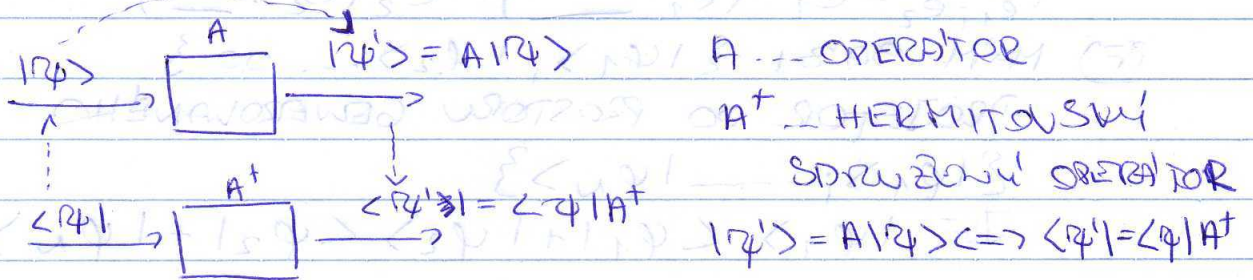 A
|ψ> |ψ'> = A|ψ> A ... OPERÁTOR
A⁺ ... HERMITOVSKÝ
SDRUŽENÝ OPERÁTOR
A⁺
<ψ| <ψ'| = <ψ|A⁺ |ψ'> = A|ψ> <=> <ψ'| = <ψ|A⁺